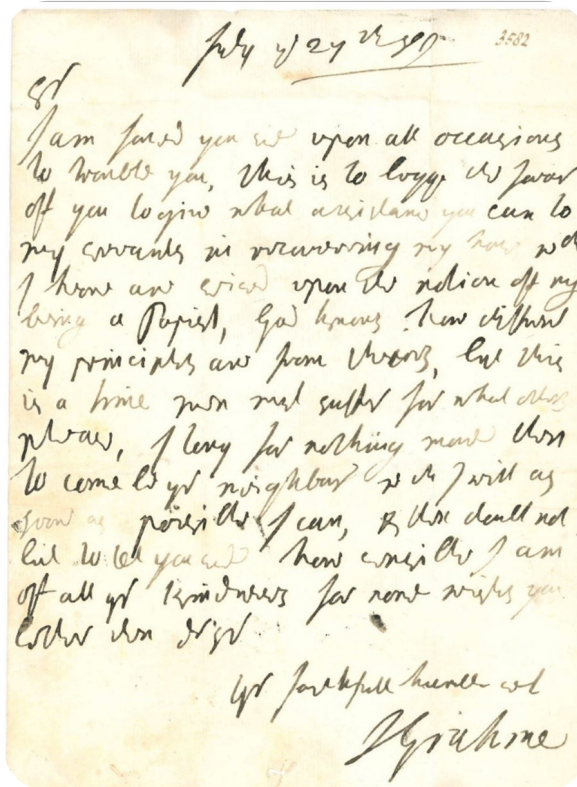 July ye 27th 3582
Sr
I am forced you see upon all occasions
to trouble you, this is to begge the favor
off you to give what assistance you can to
my servants in recovering my wch
I heare are seised upon the notion off my
being a Papist, God knows how different
my principles are from theyrs, but this
is a time men must suffer for what others
please, I long for nothing more then
to come be yr neighbour wch I will as
soone as possible I can, & then doubt not
but to let you see how sensible I am
off all yr kindnesses for none wishes you
better then Dr Sr
yr faithfull humble
J Grahme